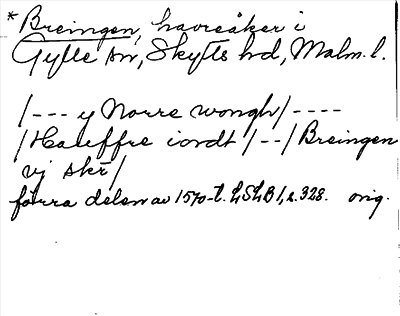 * Breingen, havreåker i
Gylle sn, Skytts hd, Malm. l.
/--- y Norre wongh/----
/Hauffre iordt/--/Breingen
vj skr/
förra delen av 1570-t. LSLB 1, s. 328. orig.